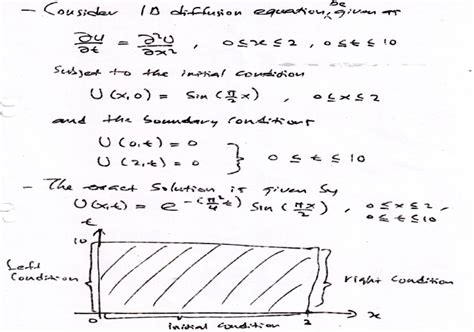 - Consider 1D diffusion equation, be given as
∂U/∂t = ∂²U/∂x² , 0≤x≤2 , 0≤t≤10
Subject to the initial condition
U(x,0) = Sin(π/2 x) , 0≤x≤2
and the boundary conditions
U(0,t) = 0
U(2,t) = 0 } 0≤t≤10
- The exact solution is given by
U(x,t) = e^-(π²/4 t) Sin(πx/2) , 0≤x≤2,
0≤t≤10
t
10
Left
Condition
right condition
0
initial condition
2
x